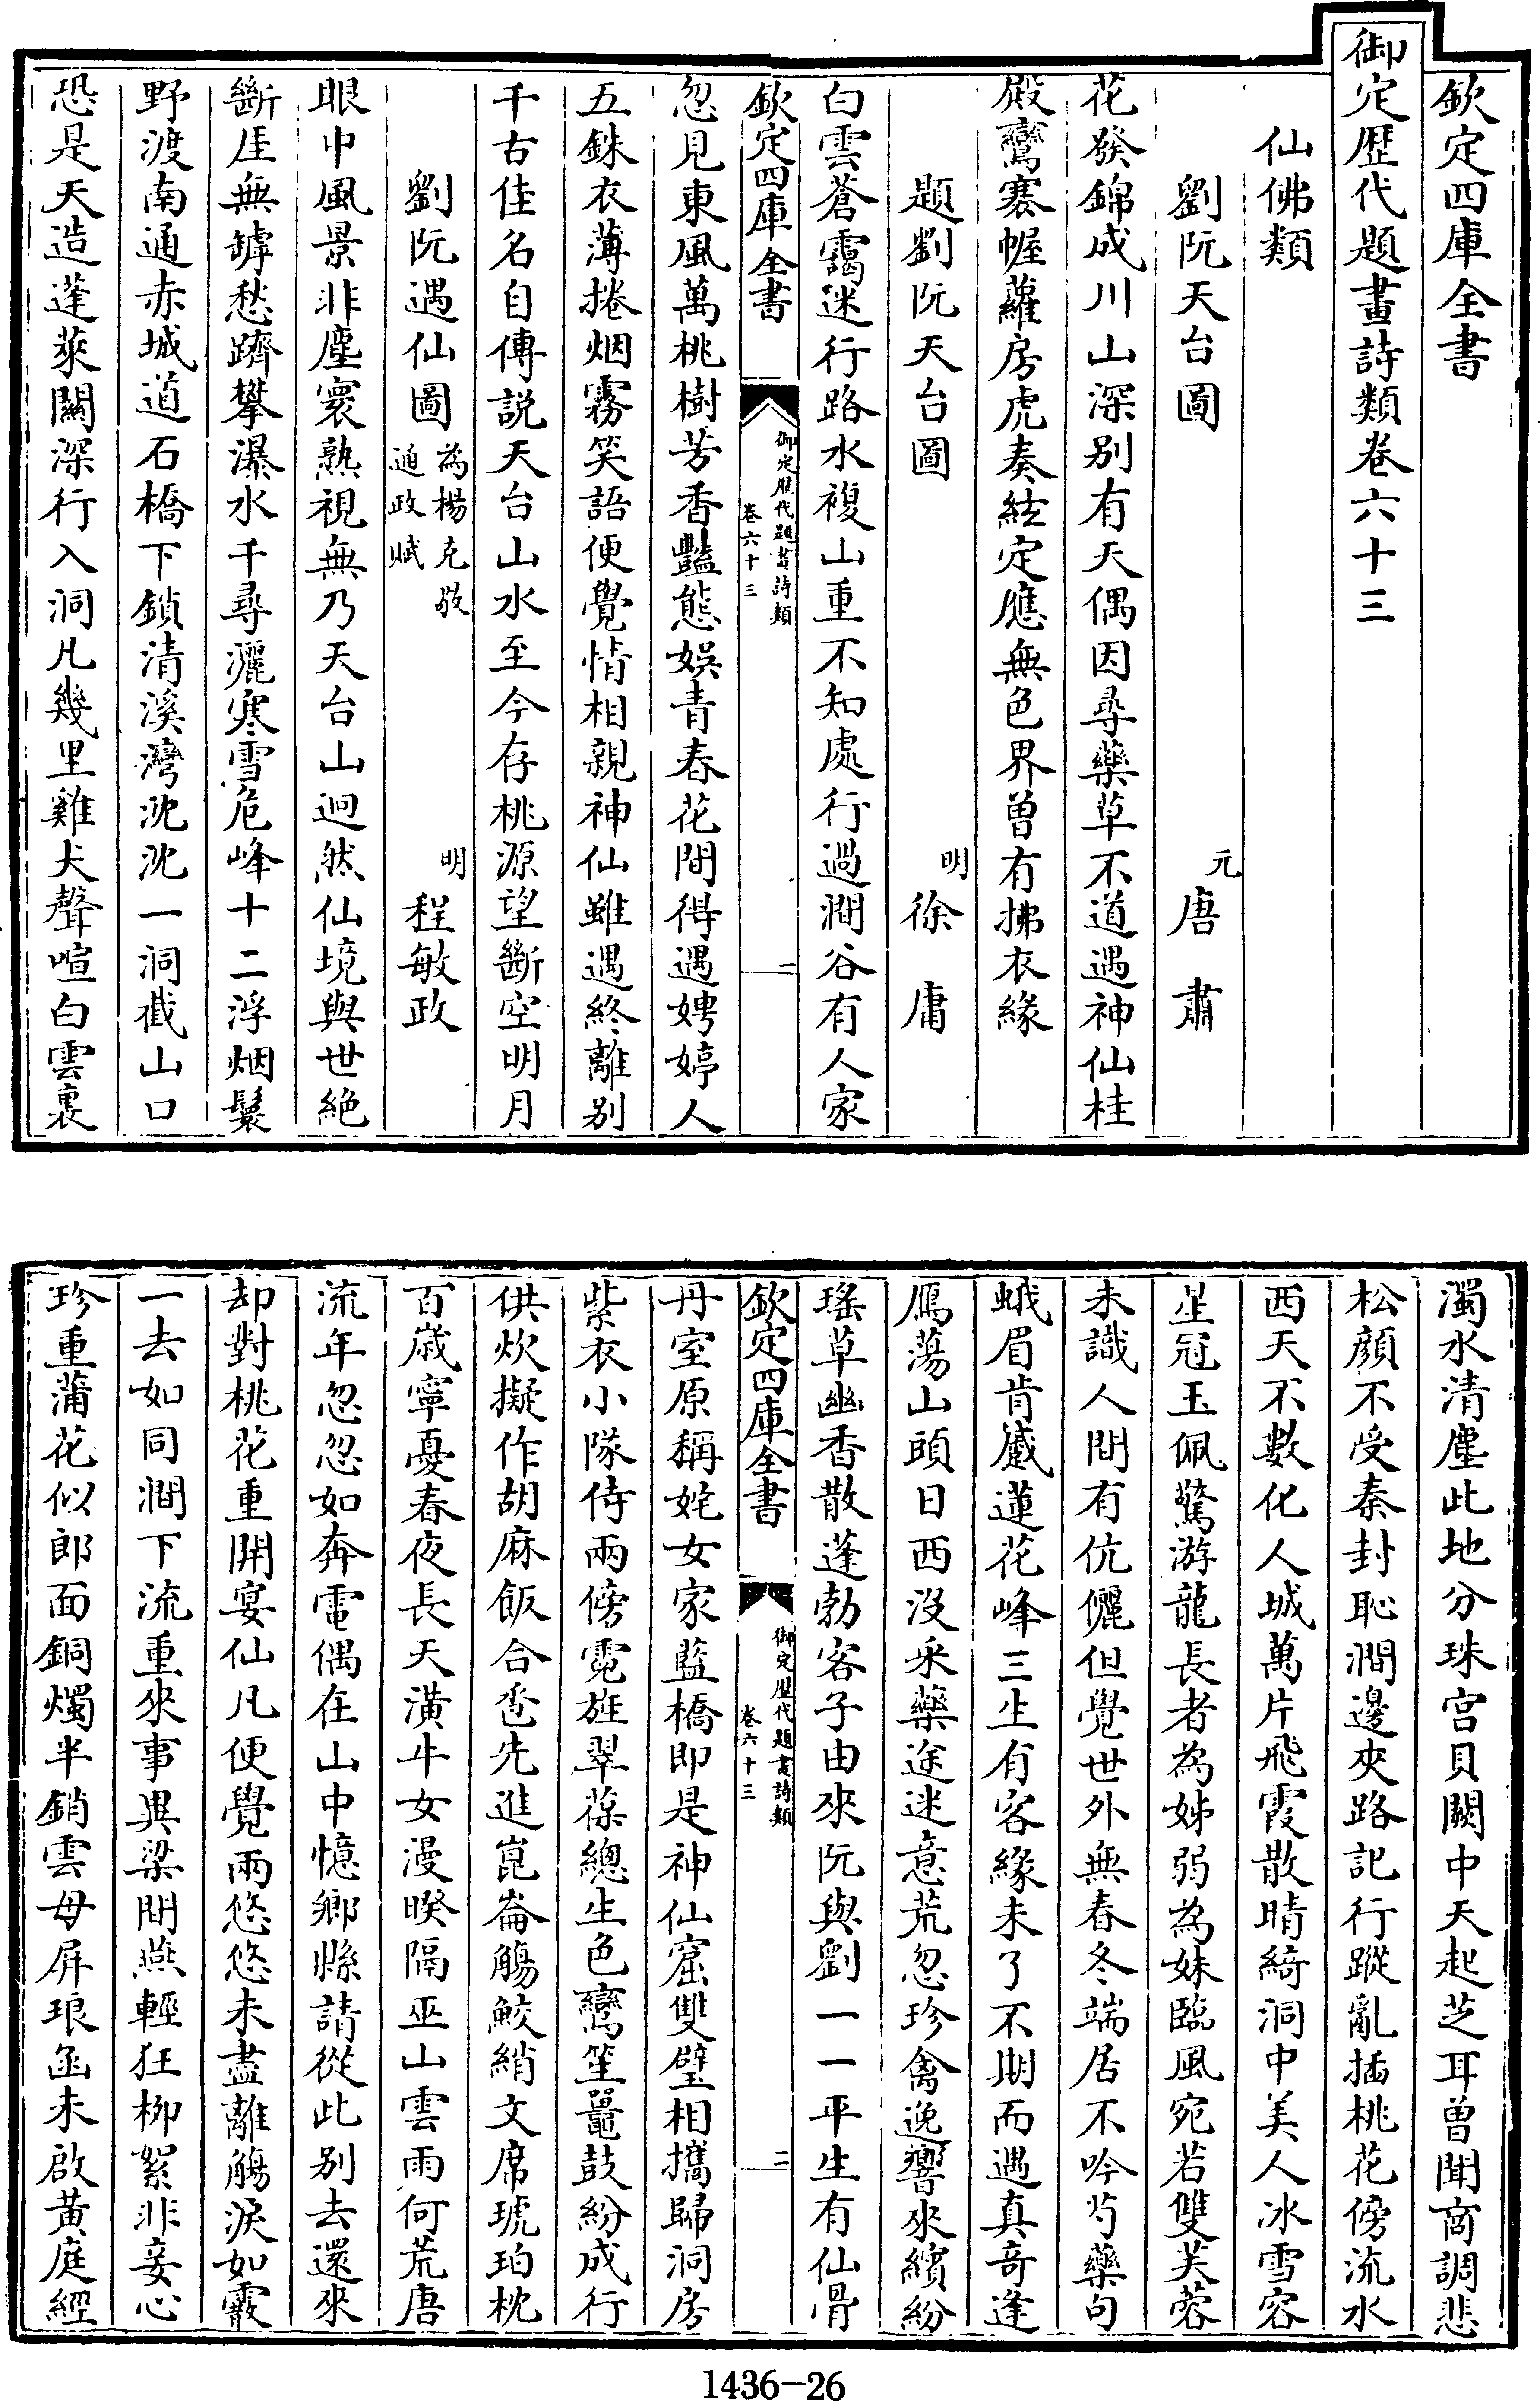 欽定四庫全書
御定歴代題畫詩類卷六十三
仙佛類
劉阮天台圖
元
唐肅
花發錦成川山深别有天偶因尋藥草不道遇神仙桂
殿鸞褰幄蘿房虎奏絃定應無色界曽有拂衣緣
題劉阮天台圖
明
徐庸
白雲蒼靄迷行路水複山重不知處行過澗谷有人家
欽定四庫全書
御定歴代題畫詩類
卷六十三
一
忽見東風萬桃樹芳香豔態娯青春花間得遇娉婷人
五銖衣薄捲烟霧笑語便覺情相親神仙雖遇終離别
千古佳名自傳説天台山水至今存桃源望斷空明月
劉阮遇仙圖
為楊克敬
通政賦
明
程敏政
眼中風景非塵寰熟視無乃天台山迥然仙境與世絶
斷厓無罅愁躋攀瀑水千尋灑寒雪危峰十二浮烟鬟
野渡南通赤城道石橋下鎖清溪灣沈沈一洞截山口
恐是天造蓬萊關深行入洞凡幾里雞犬聲喧白雲裏
濁水清塵此地分珠宫貝闕中天起芝耳曽聞商調悲
松顔不受秦封恥澗邊夾路記行蹤亂插桃花傍流水
西天不數化人城萬片飛霞散晴綺洞中美人冰雪容
星冠玉佩驚游龍長者為姊弱為妹臨風宛若雙芙蓉
未識人間有伉儷但覺世外無春冬端居不吟芍藥句
蛾眉肯蹙蓮花峰三生有客緣未了不期而遇真奇逢
鴈蕩山頭日西没采藥途迷意荒忽珍禽逸響來繽紛
瑤草幽香散蓬勃客子由來阮與劉一一平生有仙骨
欽定四庫全書
御定歴代題畫詩類
卷六十三
二
丹室原稱姹女家藍橋即是神仙窟雙璧相攜歸洞房
紫衣小隊侍兩傍霓旌翠葆總生色鸞笙鼉鼓紛成行
供炊擬作胡麻飯合卺先進崑崙觴鮫綃文席琥珀枕
百歲寧憂春夜長天潢牛女漫暌隔巫山雲雨何荒唐
流年忽忽如奔電偶在山中憶鄉縣請從此别去還來
却對桃花重開宴仙凡便覺兩悠悠未盡離觴淚如霰
一去如同澗下流重來事異梁間燕輕狂栁絮非妾心
珍重蒲花似郎面銅燭半銷雲母屏琅函未啟黄庭經
1436-26